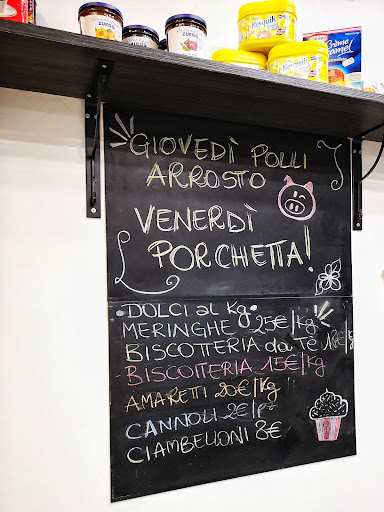 ZUEGG
ZUEGG
Nesquik
Nesquik
Crème
Caramel
GIOVEDÌ POLLI
ARROSTO
VENERDÌ
PORCHETTA!
DOLCI al Kg
MERINGHE 25€/Kg
BISCOTTERIA da Tè 18€/Kg
BISCOTTERIA 15€/Kg
AMARETTI 20€/Kg
CANNOLI 2€/pz
CIAMBELLONI 8€